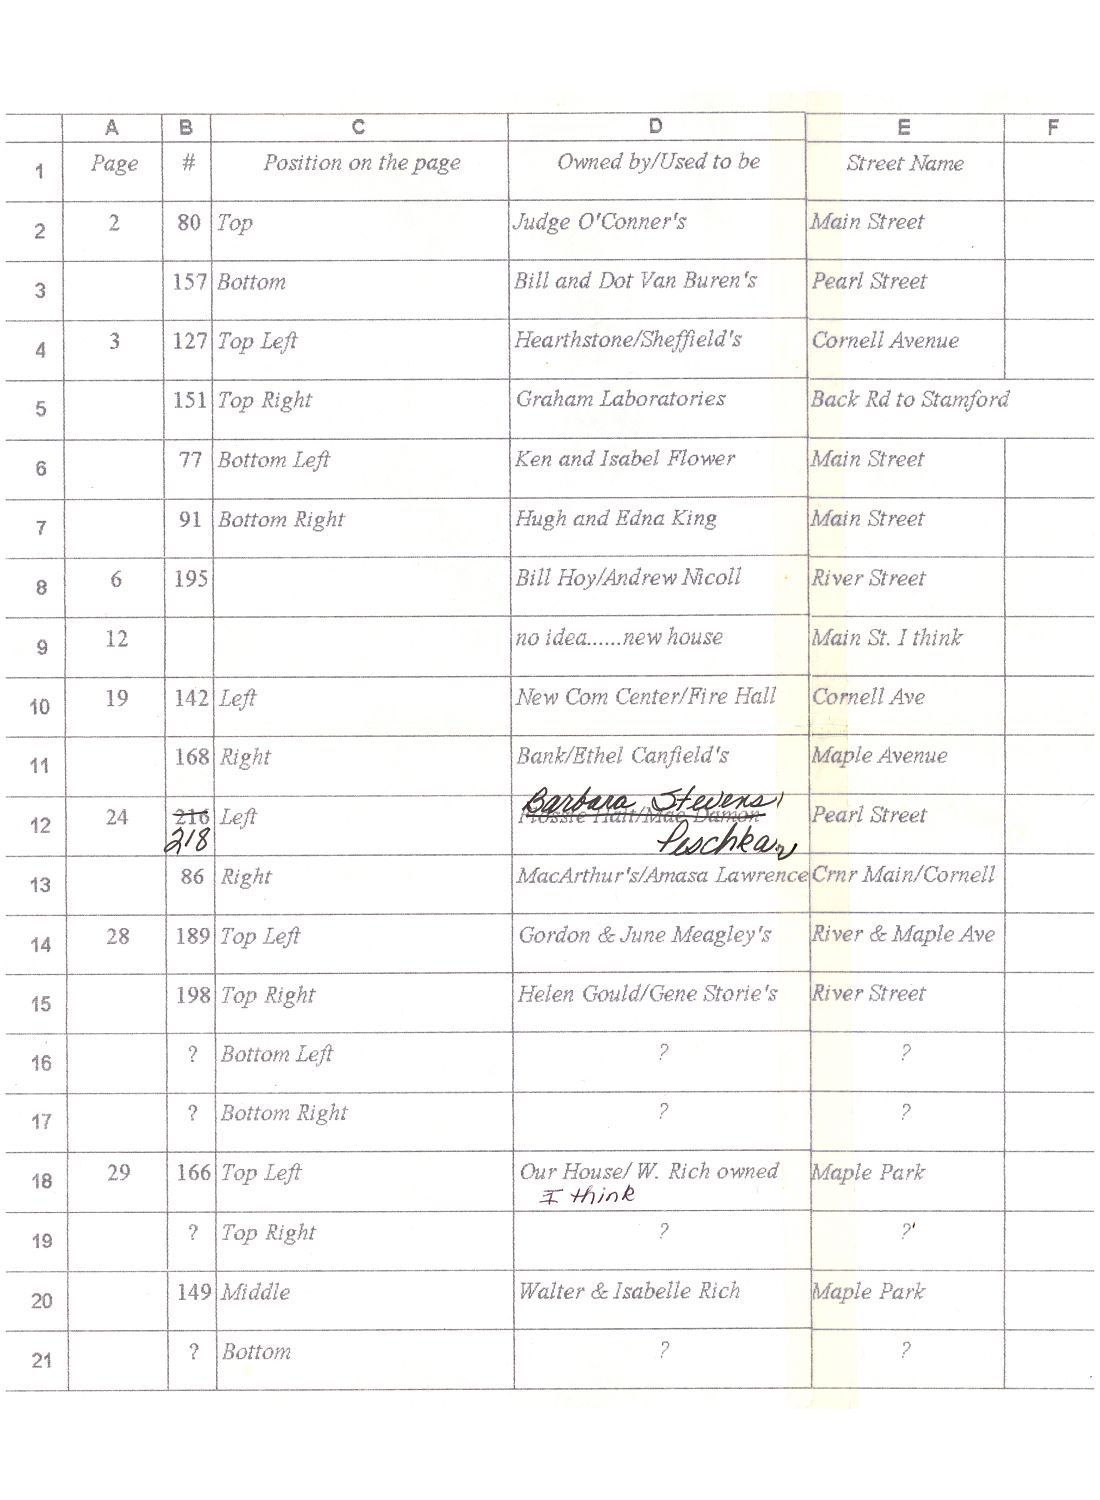 A B C D E F
1 Page # Position on the page Owned by/Used to be Street Name
2 2 80 Top Judge O'Conner's Main Street
3 157 Bottom Bill and Dot Van Buren's Pearl Street
4 3 127 Top Left Hearthstone/Sheffield's Cornell Avenue
5 151 Top Right Graham Laboratories Back Rd to Stamford
6 77 Bottom Left Ken and Isabel Flower Main Street
7 91 Bottom Right Hugh and Edna King Main Street
8 6 195 Bill Hoy/Andrew Nicoll River Street
9 12 no idea......new house Main St. I think
10 19 142 Left New Com Center/Fire Hall Cornell Ave
11 168 Right Bank/Ethel Canfield's Maple Avenue
Barbara Stevens'
12 24 216 Left Pearl Street
218
13 86 Right MacArthur's/Amasa Lawrence Crnr Main/Cornell
14 28 189 Top Left Gordon & June Meagley's River & Maple Ave
15 198 Top Right Helen Gould/Gene Storie's River Street
16 ? Bottom Left ? ?
17 ? Bottom Right ? ?
18 29 166 Top Left Our House/ W. Rich owned Maple Park
I think
19 ? Top Right ? ?
20 149 Middle Walter & Isabelle Rich Maple Park
21 ? Bottom ? ?